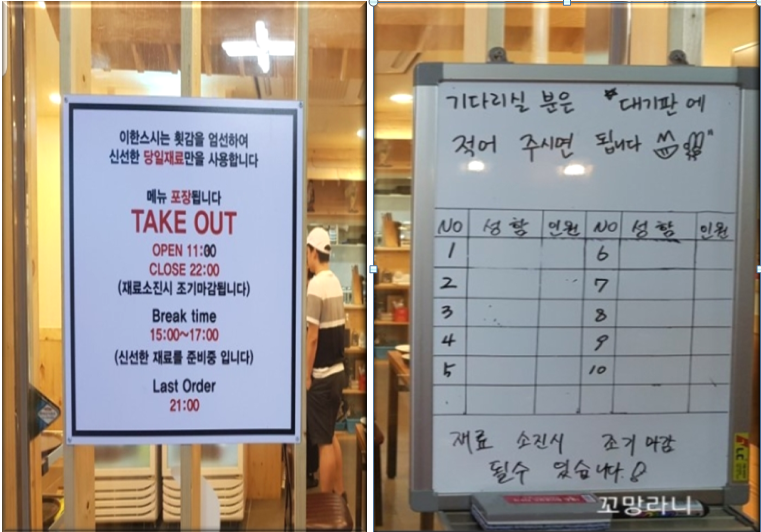 이한스시는 횟감을 엄선하여
신선한 당일재료만을 사용합니다
메뉴 포장됩니다
TAKE OUT
OPEN 11:00
CLOSE 22:00
(재료소진시 조기마감됩니다)
Break time
15:00~17:00
(신선한 재료를 준비중 입니다)
Last Order
21:00
기다리실 분은 "대기판에
적어 주시면 됩니다
NO 성함 인원 NO 성함 인원
1 6
2 7
3 8
4 9
5 10
재료 소진시 조기마감
될수 있습니다.
꼬망라니